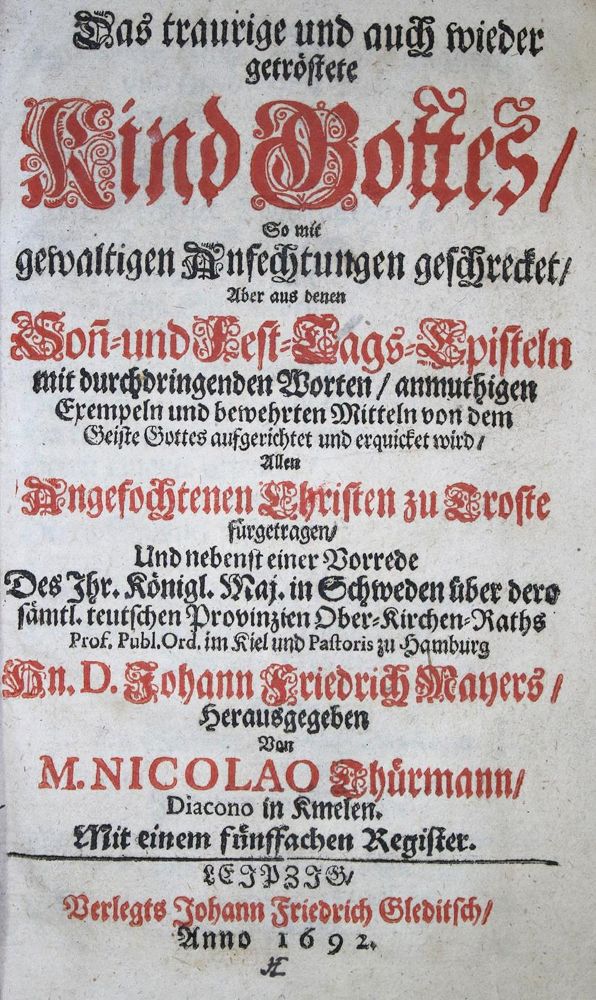 Das traurige und auch wieder
getröstete
Kind Gottes/
So mit
gewaltigen Anfechtungen geschrecket/
Aber aus denen
Son̄-und Fest-Tags-Episteln
mit durchdringenden Worten/ anmuthigen
Exempeln und bewehrten Mitteln von dem
Geiste Gottes aufgerichtet und erquicket wird/
Allen
Angefochtenen Christen zu Troste
fürgetragen/
Und nebenst einer Vorrede
Des Ihr. Königl. Maj. in Schweden über dero
sämtl. teutschen Provinzien Ober-Kirchen-Raths
Prof. Publ. Ord. im Kiel und Pastoris zu Hamburg
Hn. D. Johann Friedrich Mayers/
Herausgegeben
Von
M. NICOLAO Thürmann/
Diacono in Kmelen.
Mit einem fünffachen Register.
LEIPZIG/
Verlegts Johann Friedrich Gleditsch/
Anno 1692.